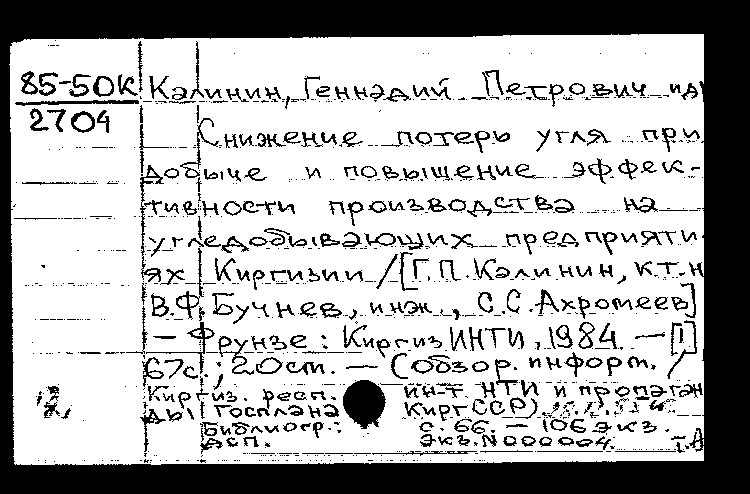 85-50К Калинин, Геннадий Петрович и др
2704
Снижение потерь угля при
добыче и повышение эффек-
тивности производства на
угледобывающих предприяти-
ях Киргизии / [Г.П. Калинин, к.т.н
В.Ф. Бучнев, инж., С.С. Ахромеев]
— Фрунзе : КиргизИНТИ, 1984. — [1]
67с.; 20см. — (Обзор. информ. /
Киргиз. респ. ин-т НТИ и пропаган
ды Госплана КиргССР)
Библиогр.: с. 66. — 106 экз.
ДСП. Экз. N000004. т.А